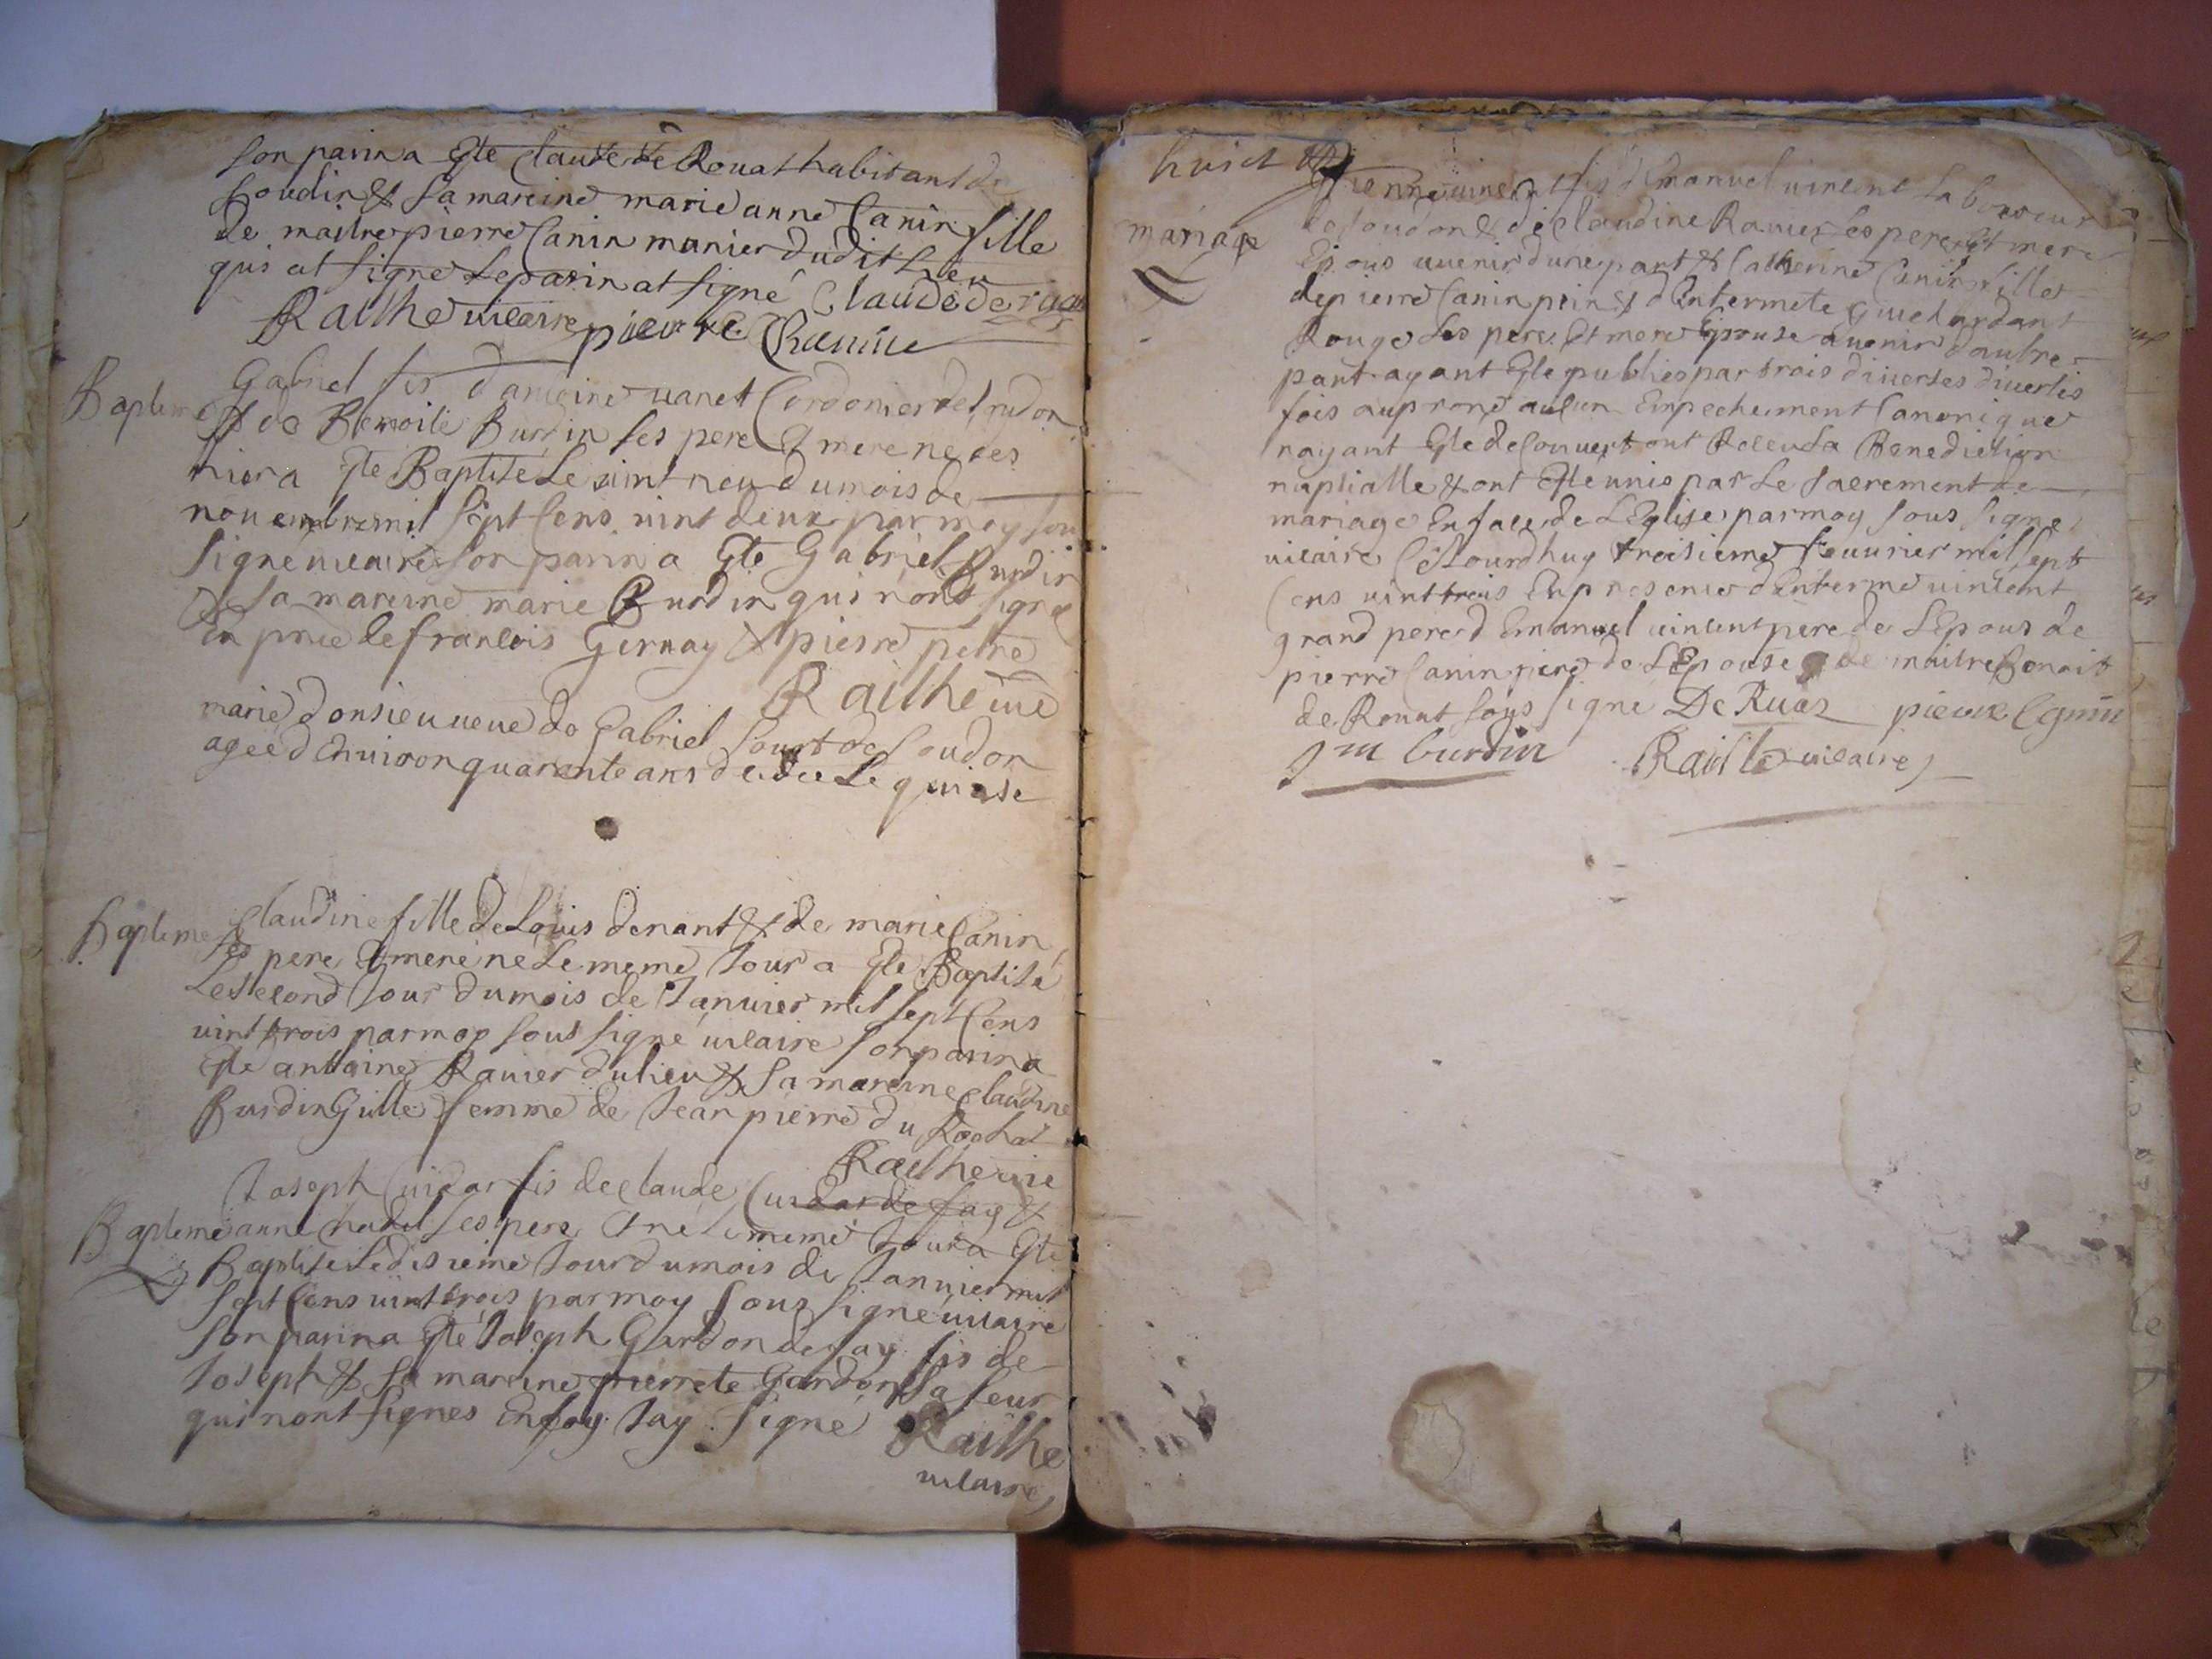 son parin a Ete Claude de Rouat habitant de
Soudin & sa mareine marie anne Canin fille
de maitre pierre Canin munier dudit Lieu
qui at signe Le parin at signé Claude de ruat
Railhe vicaire pierre Canin
Bapteme
Gabriel fis d'antoine vanet Cordonier de
& de Benoite Burdin ses pere Et mere ne
hier a Ete Baptise Le vint neu du mois de
novembre mil sept Cens vint deux par moy sou
signé vicaire son parin a Ete Gabriel Burdin
& sa mareine marie Burdin qui nont signe
En pnce de francois Gernay & pierre petre
Railhe vice
marie donsieu veue de Gabriel de Soudon
agee d Environ quarante ans decedee Le quinse
Bapteme
Claudine fille de Louis denant & de marie Canin
ses pere Et mere ne Le meme Jour a Ete Baptisé
Le second Jour du mois de Janvier mil sept Cens
vint trois par moy sous signé vicaire son parin a
Ete antoine Ravier du lieu & sa mareine Claudine
Burdin Gille femme de Jean pierre du Rochat
Railhe vice
Joseph Cuidar fis de claude Cuidar de fay &
Bapteme
anne ses pere Et né Le meme Jour a Ete
Baptise Le disieme Jour du mois de Janvier mil
sept Cens vint trois par moy sous signé vicaire
son parin a Ete Joseph Gardon de fay fis de
Joseph & sa mareine pierrete Gardon sa seur
qui nont signes En foy Jay signé Railhe
vicaire
huict
mariage
Etienne vincent fis d Emanuel vincent Laboureur
de Soudon & de Claudine Ravier ses pere Et mere
Epous avenir d'une part & Catherine Canin fille
de pierre Canin & d Entermete
Rouge ses pere Et mere Epouse avenir d'autre
part ayant Ete publies par trois diverses diverses
fois au prone aucun Empechement Canonique
nayant Ete decouvert ont Receu La Benediction
nuptialle & ont Ete unis par Le sacrement de
mariage En face de L'Eglise par moy sous signe
vicaire Cejourdhuy troisieme feuvrier mil sept
Cens vint trois En presence d Enterme vincent
grand pere d Emanuel vincent pere de L'Epous de
pierre Canin pere de L'Epouse & de maitre Benoit
de Rouat sous signe De Ruat pierre Canin
Jm burdin Railhe vicaire